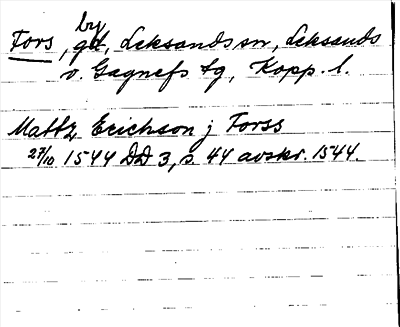 by
Fors, gd, Leksands sn, Leksands
o. Gagnefs tg, Kopp. l.
Mattz Erichson j Forss
27/10 1544 DD 3, s. 44 avskr. 1544.